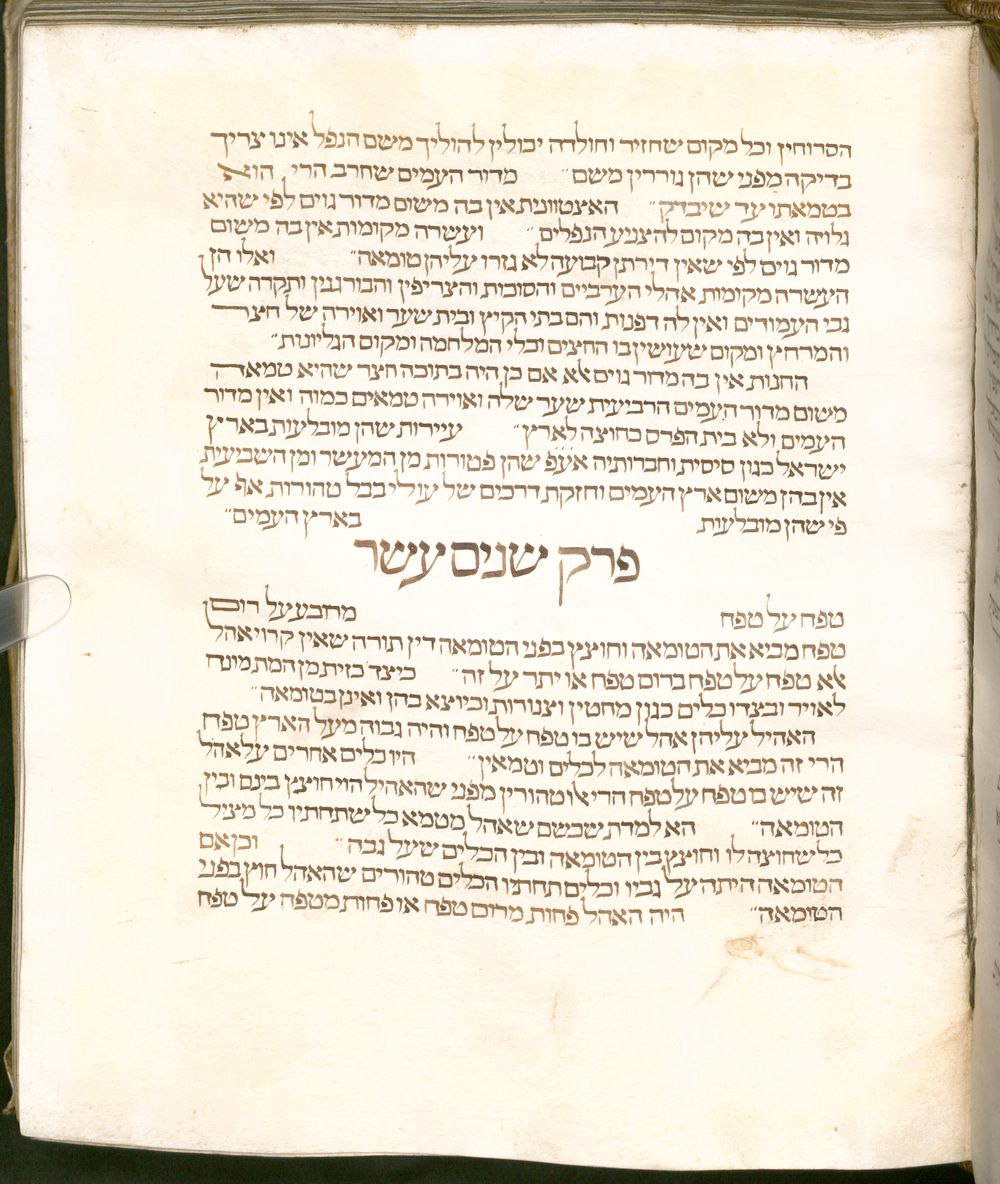 הסרוחין וכל מקום שחזיר וחולדה יכולין להוליך משם הנפל אינו צריך
בדיקה מפני שהן גוררין משם״ מדור העמים שחרב הרי הוא
בטמאתו עד שיבדק״ האצטוונית אין בה משום מדור גוים לפי שהיא
גלויה ואין בה מקום להצניע הנפלים״ ועשרה מקומות אין בה משום
מדור גוים לפי שאין דירתן קבועה לא גזרו עליהן טומאה״ ואלו הן
העשרה מקומות אהלי הערביים והסוכות והצריפין והבורגנין ותקרה שעל
גבי העמודים ואין לה דפנות והם בתי הקיץ ובית שער ואוירה של חצר
והמרחץ ומקום שעושין בו החצים וכלי המלחמה ומקום הגליונות״
החנות אין בה מדור גוים אלא אם כן היה בתוכה חצר שהיא טמאה
משום מדור העמים הרביעית שער שלה ואוירה טמאים כמוה ואין מדור
העמים ולא בית הפרס בחוצה לארץ״ עיירות שהן מובלעות בארץ
ישראל כגון סיסית וחברותיה אעפ שהן פטורות מן המעשר ומן השביעית
אין בהן משום ארץ העמים וחזקת דרכים של עולי בבל טהורות אף על
פי שהן מובלעות בארץ העמים״
פרק שנים עשר
טפח על טפח מרובע על רום
טפח מביא את הטומאה וחוצץ בפני הטומאה דין תורה שאין קרוי אהל
אלא טפח על טפח ברום טפח או יתר על זה״ כיצד כזית מן המת מונח
לאויר ובצדו כלים כגון מחטין וצנורות וכיוצא בהן ואינן בטומאה״
האהיל עליהן אהל שיש בו טפח על טפח והיה גבוה מעל הארץ טפח
הרי זה מביא את הטומאה לכלים וטמאין״ היו כלים אחרים על אהל
זה שיש בו טפח על טפח הרי אלו טהורין מפני שהאהיל הוי חוצץ בינם ובין
הטומאה״ הא למדת שכשם שאהל מטמא כל שתחתיו כל מציל
כל שחוצה לו וחוצץ בין הטומאה ובין הכלים שעל גבה״ וכן אם
הטומאה היתה על גביו וכלים תחתיו הכלים טהורים שהאהל חוצץ בפני
הטומאה״ היה האהל פחות מרום טפח או פחות מטפח על טפח